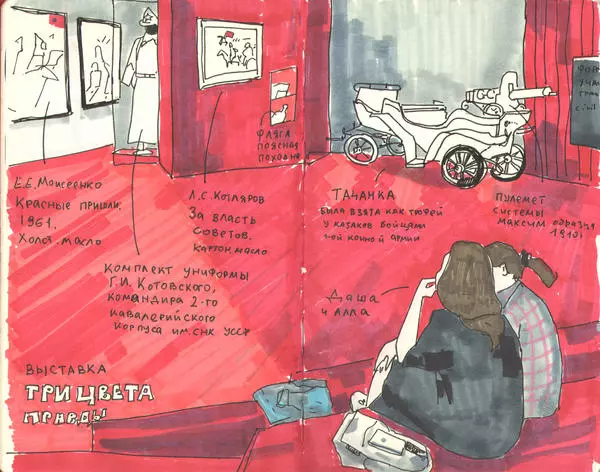 Е.Е.Моисеенко
Красные пришли.
1961.
Холст.масло
Комплект униформы
Г.И.Котовского,
командира 2-го
кавалерийского
корпуса им.СНК УССР
Л.С.Котляров
За власть
Советов.
Картон.масло
Фляга
поясная
походная
Тачанка
была взята как трофей
у казаков бойцами
1-ой конной армии
Пулемет
системы
Максим образца
1910г
Даша
и Алла
Выставка
ТРИ ЦВЕТА
ПРАВДЫ